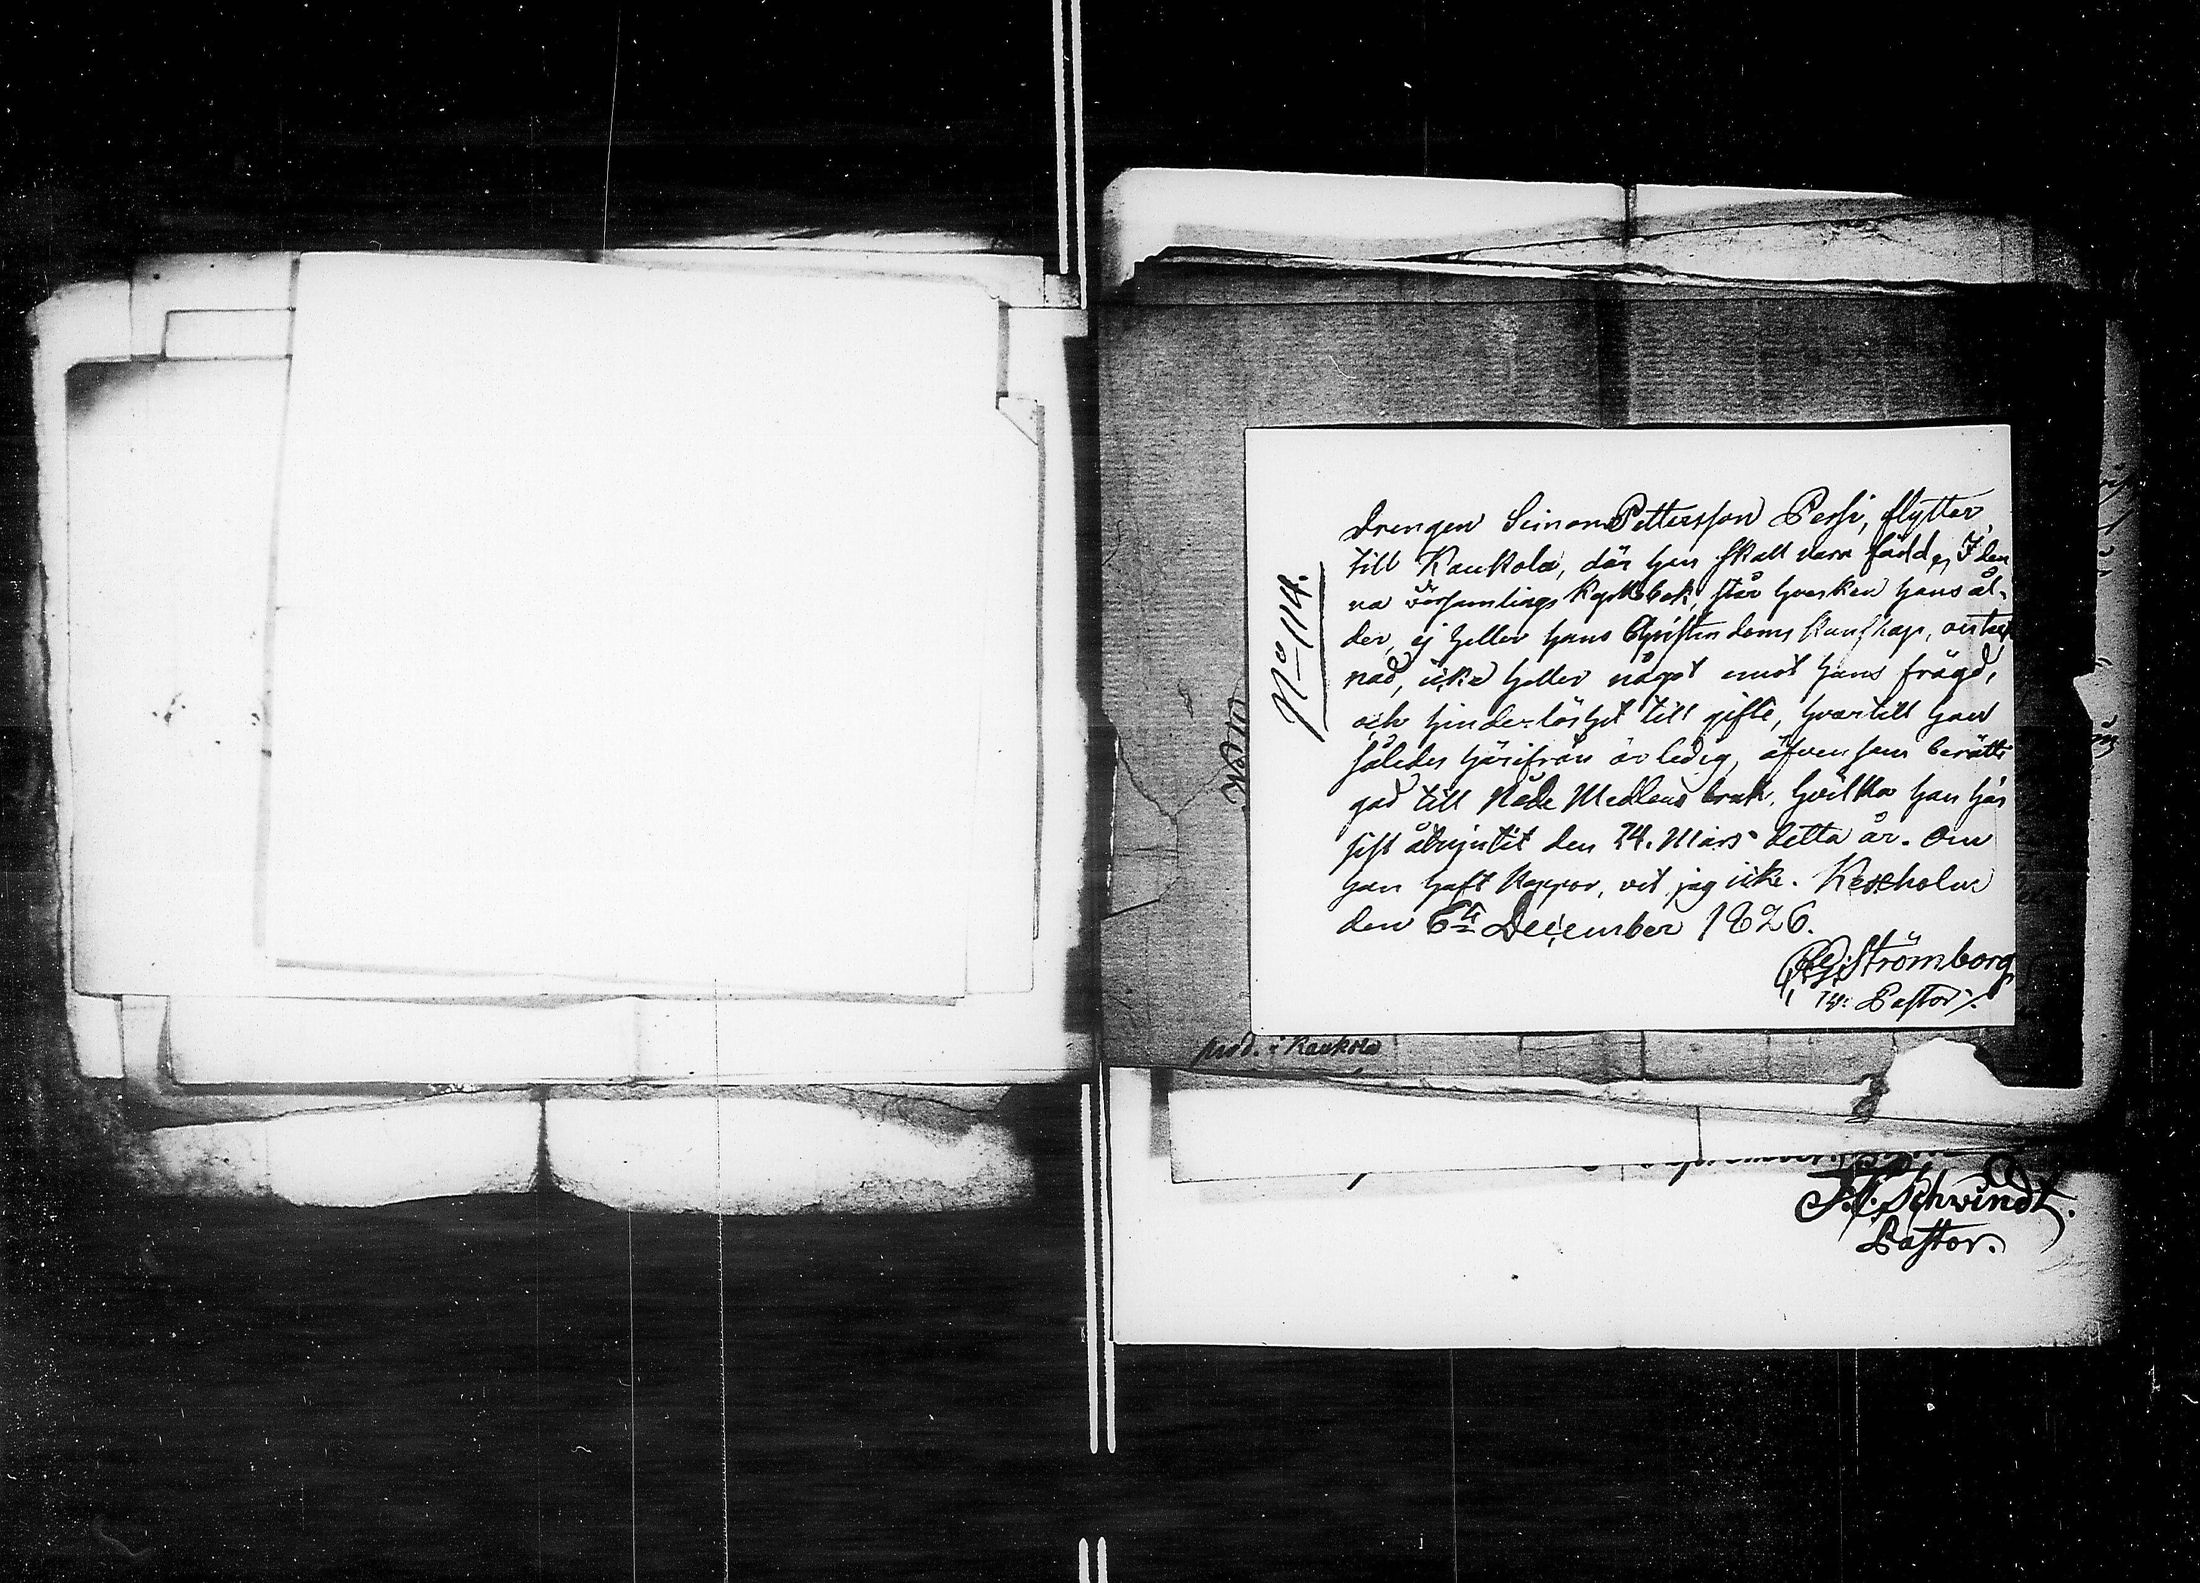 No 114.
Drengen Simon Pettersson Persi, flytter
till Kaukola, där han skall vara född. I den
na församlings kyrkobok, står hvarken hans ål-
der, ej heller hans Christendoms kunskap, anteck
nad, icke heller något emot hans frägd,
och hinderlöshet till gifte, hvartill han
således härifrån är ledig, äfvensom berätti
gad till Nåde Medlens bruk, hvilka han här
sist åtnjutit den 24. Mars detta år. Om
han haft koppor, vet jag icke. Kexholm
den 6te December 1826.
Strömborg
Pastor
prod. i Kaukola
Schvindt.
Pastor.